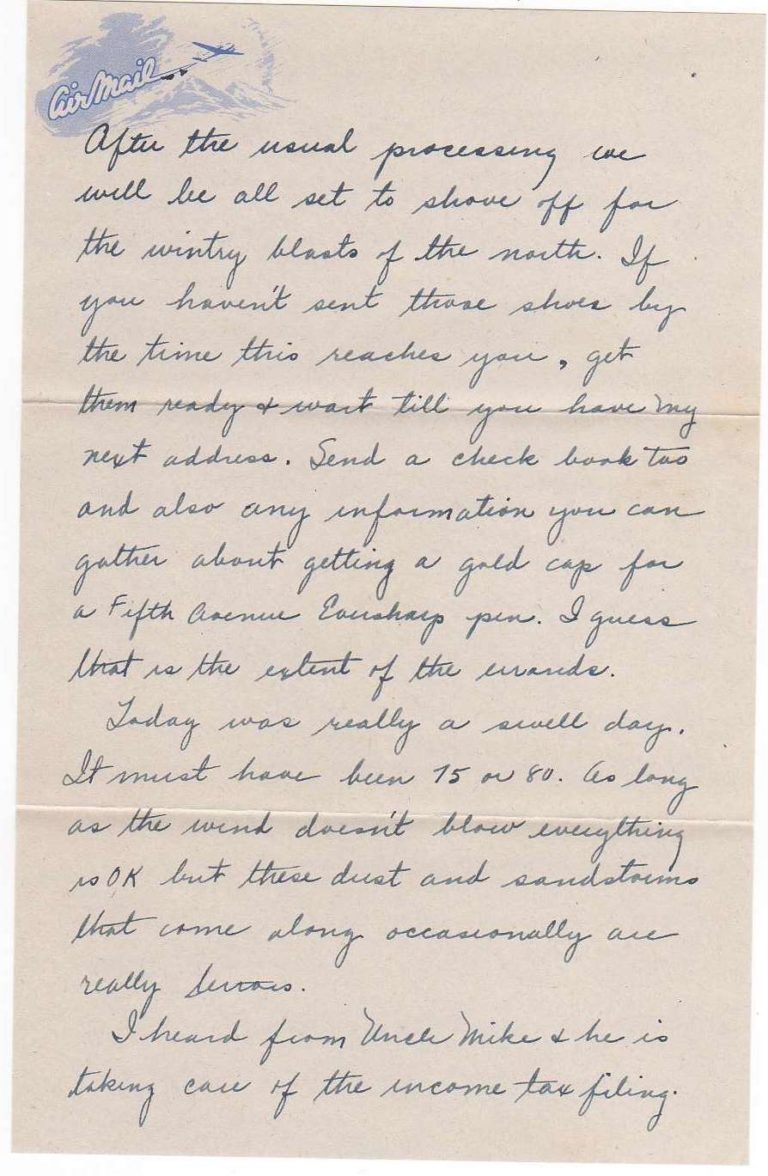 Air Mail
After the usual processing we
will be all set to shove off for
the wintry blasts of the north. If
you haven't sent those shoes by
the time this reaches you, get
them ready & wait till you have my
next address. Send a check book too
and also any information you can
gather about getting a gold cap for
a Fifth Avenue Eversharp pen. I guess
that is the extent of the errands.
Today was really a swell day.
It must have been 75 or 80. As long
as the wind doesn't blow everything
is OK but these dust and sandstorms
that come along occasionally are
really terrors.
I heard from Uncle Mike & he is
taking care of the income tax filing.